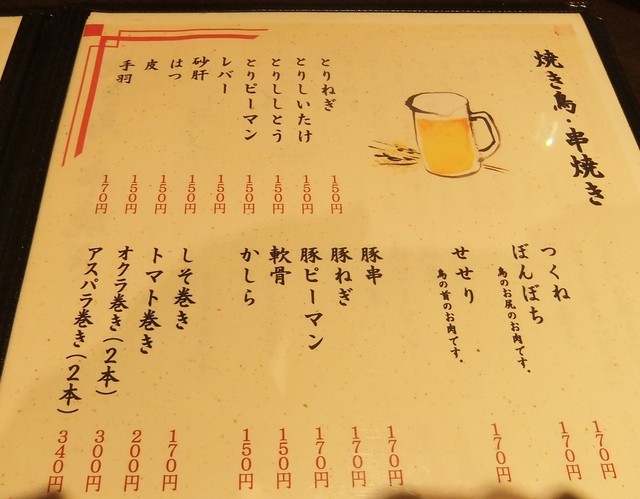 焼き鳥・串焼き
とりねぎ 150円
とりしいたけ 150円
とりししとう 150円
とりピーマン 150円
レバー 150円
砂肝 150円
はつ 150円
皮 150円
手羽 170円
つくね 170円
ぼんぼち 170円
鳥のお尻のお肉です。
せせり 170円
鳥の首のお肉です。
豚串 170円
豚ねぎ 170円
豚ピーマン 170円
軟骨 150円
かしら 150円
しそ巻き 170円
トマト巻き 200円
オクラ巻き（2本） 300円
アスパラ巻き（2本） 340円